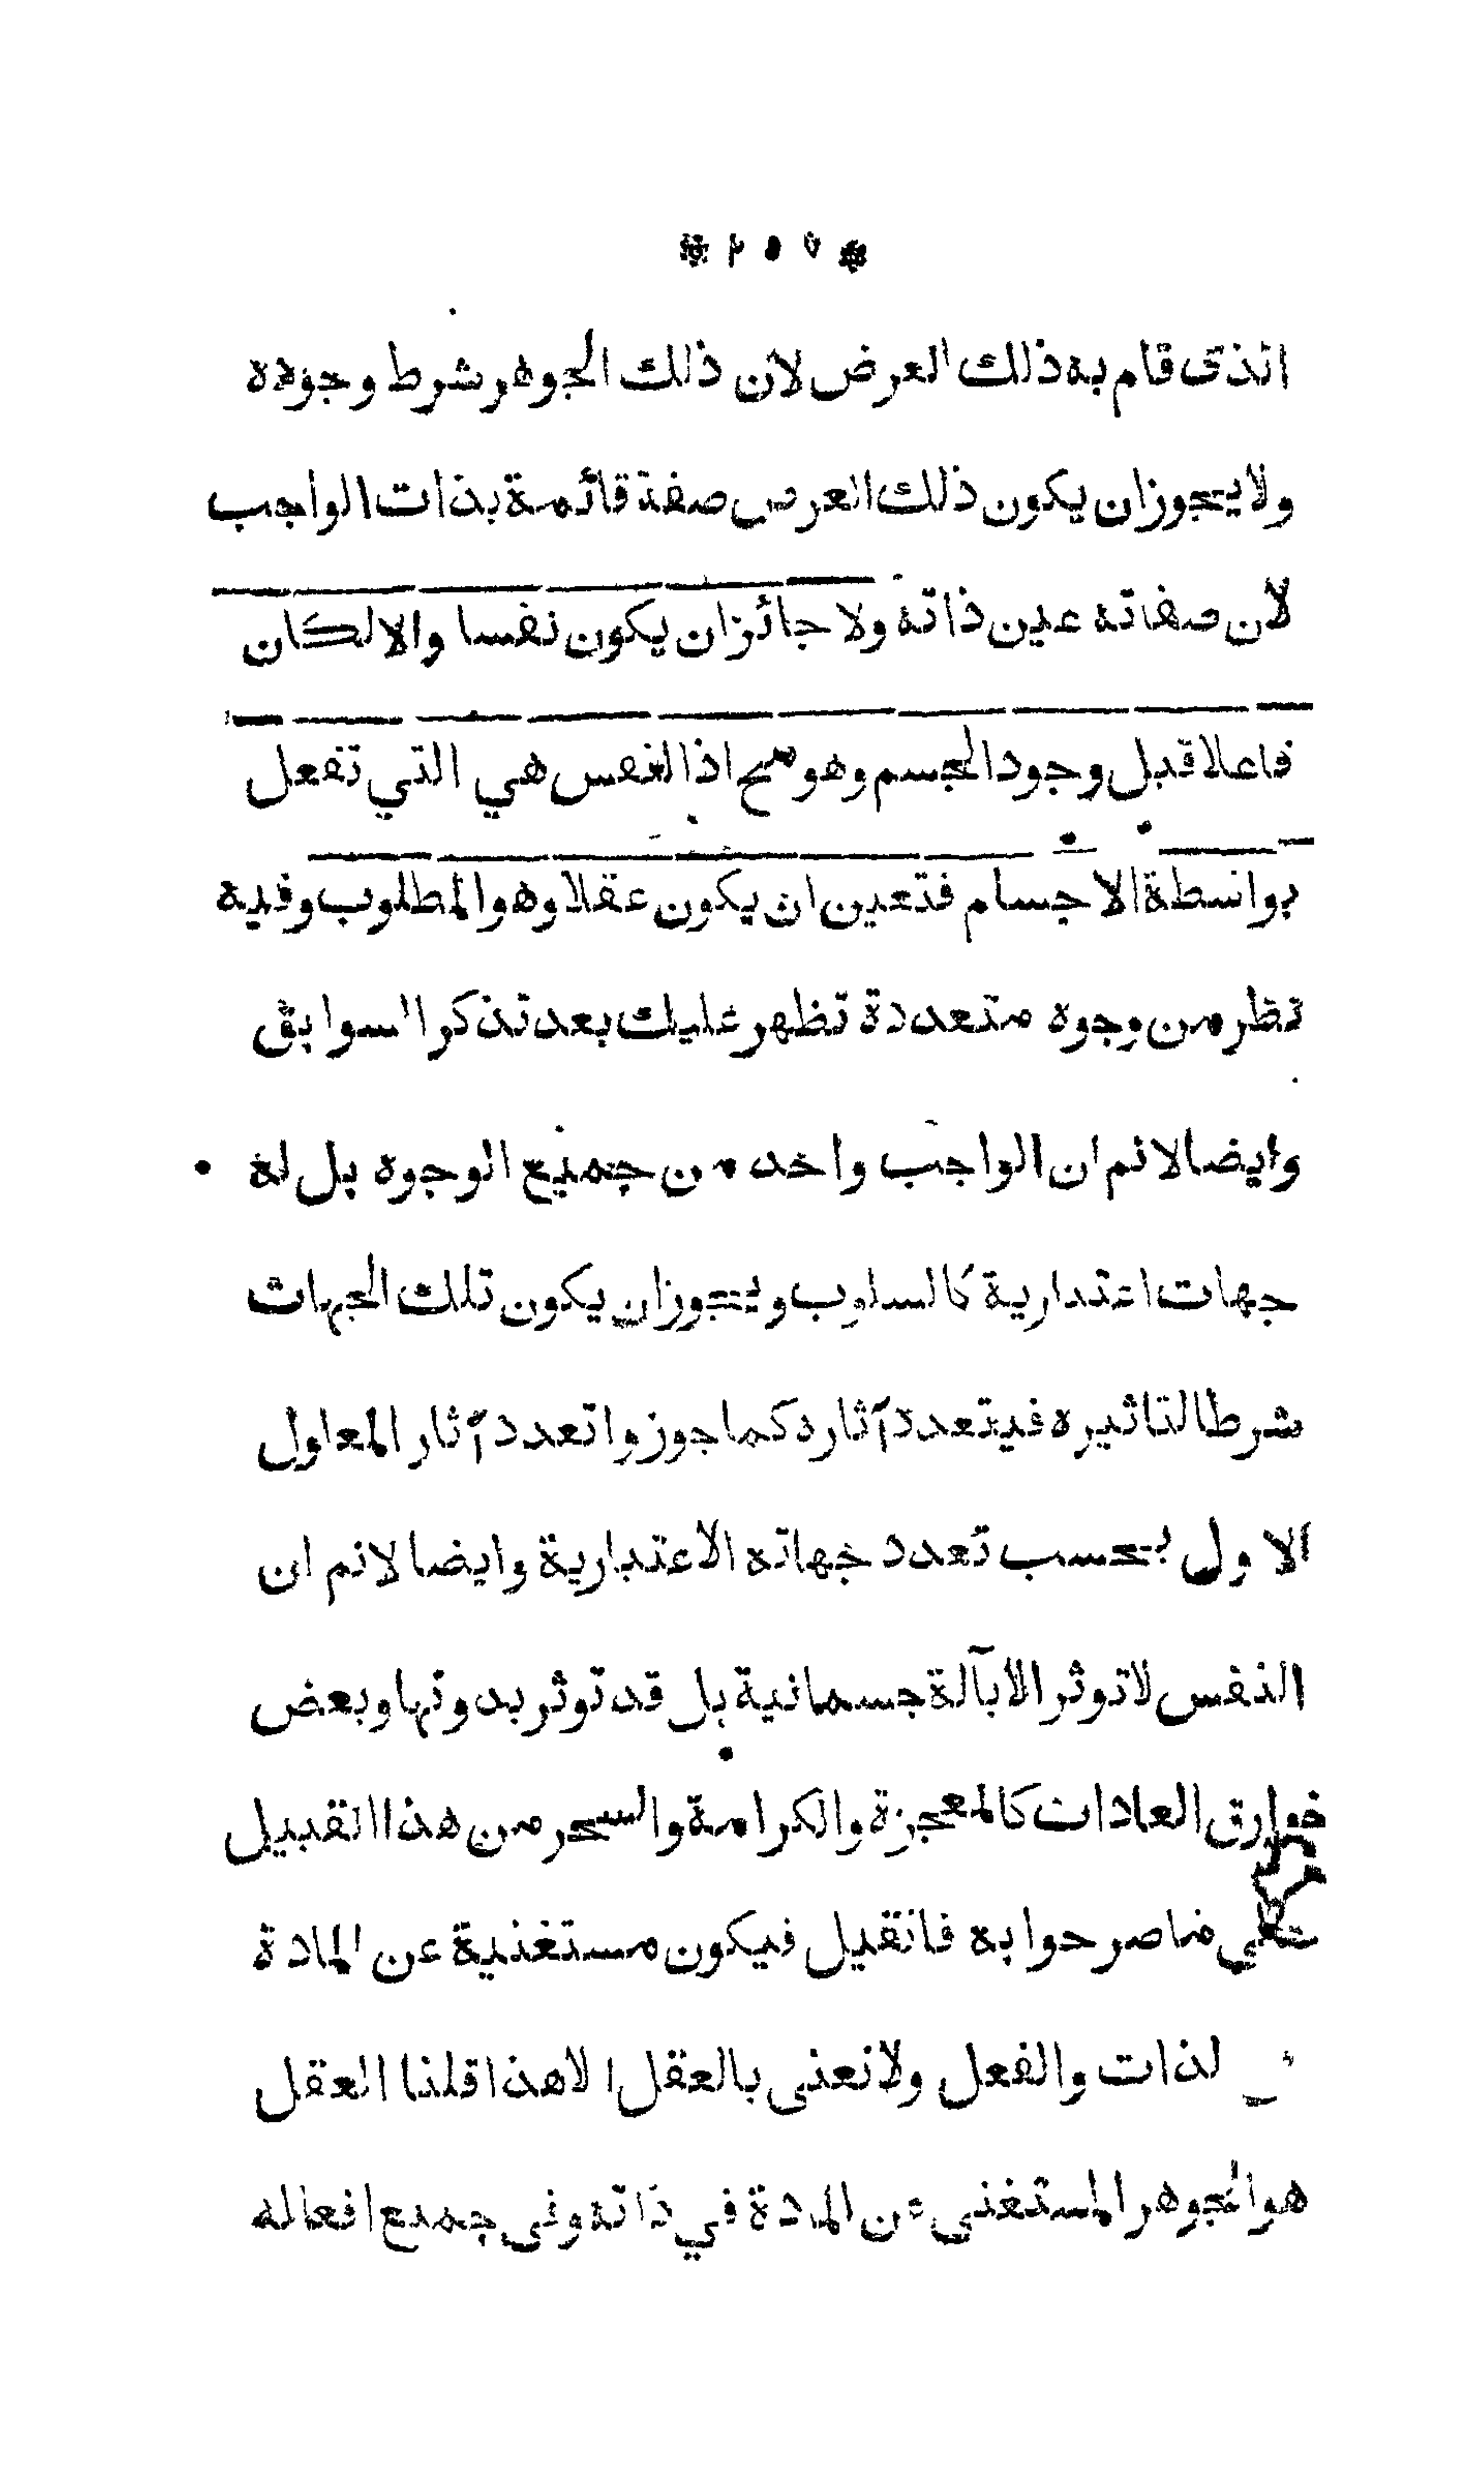 * ٢٥٧ *
الذى قام به ذلك العرض لان ذلك الجوهر شرط وجوده
ولا يجوز ان يكون ذلك العرض صفة قائمة بذات الواجب
لان صفاته عين ذاته ولا جائز ان يكون نفسا والا لكان
فاعلا قبل وجود الجسم وهو مح اذ النفس هي التي تفعل
بواسطة الاجسام فتعين ان يكون عقلا وهو المطلوب وفيه
نظر من وجوه متعددة تظهر عليك بعد تذكر السوابق
وايضا لا نم ان الواجب واحد من جميع الوجوه بل له
جهات اعتبارية كالسلوب ويجوز ان يكون تلك الجهات
شرطا لتاثيره فيتعدد آثاره كما جوزوا تعدد آثار المعلول
الاول بحسب تعدد جهاته الاعتبارية وايضا لا نم ان
النفس لا توثر الا بآلة جسمانية بل قد توثر بدونها وبعض
خوارق العادات كالمعجزة والكرامة والسحر من هذا القبيل
على ما صرحوا به فان قيل فيكون مستغنية عن المادة
لذات والفعل ولا نعنى بالعقل الا هذا قلنا العقل
هو الجوهر المستغنى عن المادة في ذاته وفى جميع افعاله